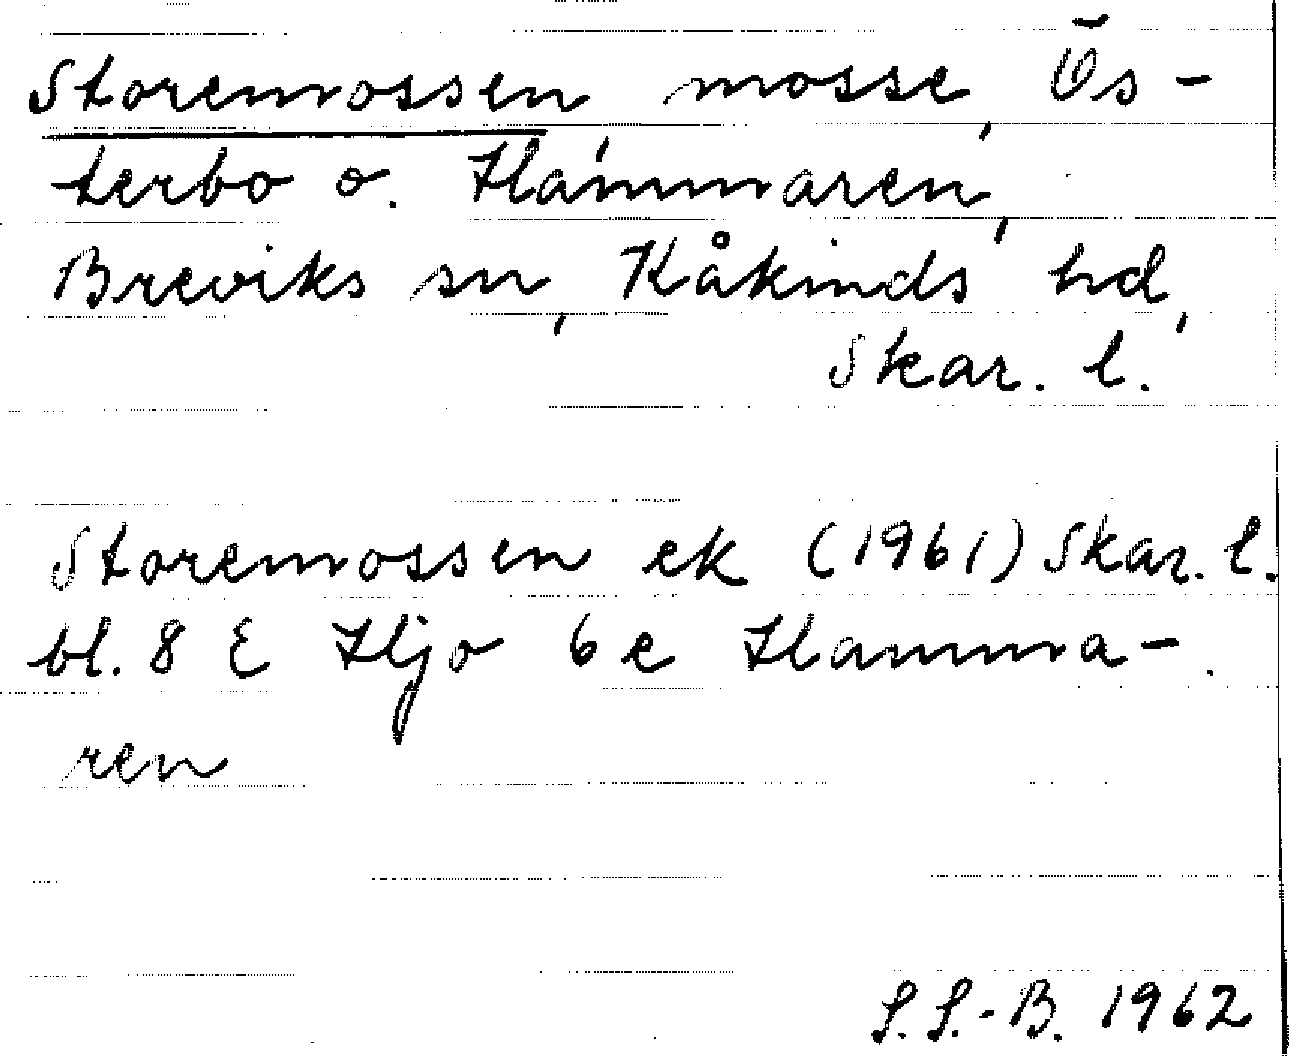 Storemossen mosse, Ös-
terbo o. Hammaren,
Breviks sn, Kåkinds hd,
Skar. l.
Storemossen ek (1961) Skar. l.
bl. 8 E Hjo 6 e Hamma-
ren
S.S.-B. 1962